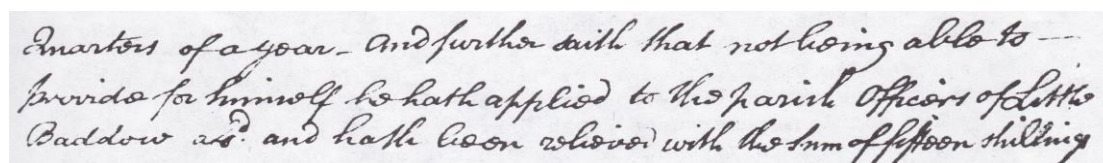 Quarters of a year - And further saith that not being able to —
provide for himself he hath applied to the parish Officers of Little
Baddow afs.d and hath been relieved with the Sum of fifteen shillings